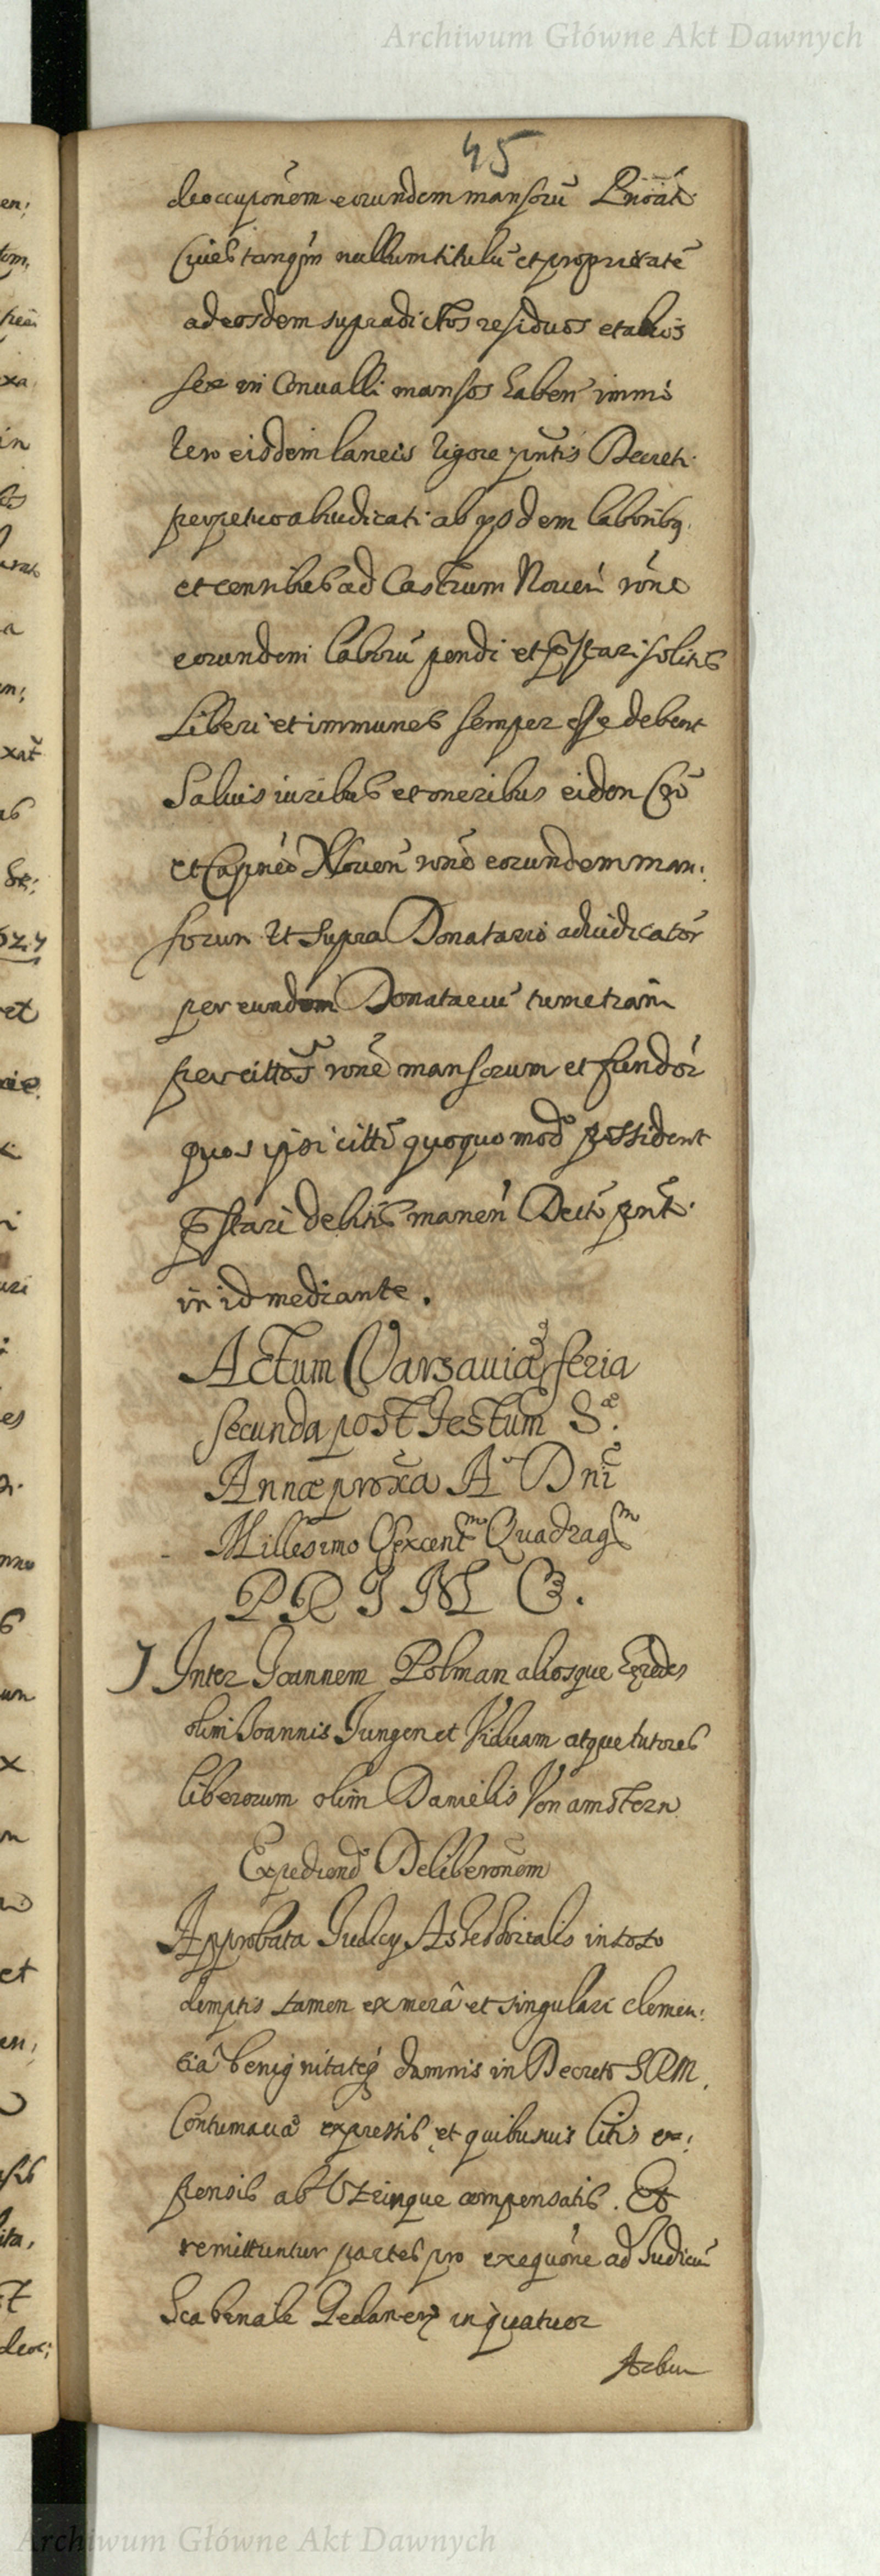 Archiwum Główne Akt Dawnych
45
deoccupõnem eorundem mansorũ
Cives tanqm nullum titulũ et proprietatẽ
ad eosdem supradictos residuos et alios
sex in Convalli mansos haben imm̃o
vero eisdem laneis vigore pñtis Decreti
perpetuo abiudicati ab ysdem laboribq
et censibus ad Castrum Noven rõne
eorundem laborũ pendi et p̃stari solitis
Liberi et immunes semper esse debent
Salvis iuribus et oneribus eidem
et Capneo Noven rõne eorundem man:
sorum Ut supra Donatario adiudicator
per eundem Donatariũ tum etiam
per cittos rõne mansorum et fundor
quos ipsi citti quoquo modo possident
p̃stari debitis manen Decto pñt
in id mediante.
Actum Varsaviæ feria
secunda post Festum S.æ
Annæ proxa Ao Dni
Millesimo Sexcentmo Quadragmo
PRIMO.
J Inter Joannem Polman aliosque hæredes
olim Joannis Jungen et Viduam atque tutores
liberorum olim Danielis Von amstern
Expediend Deliberõnem
Approbata Judicy Assessorialis in toto
demptis tamen ex merâ et singulari clemen:
tiâ benignitateq damnis in Decreto SRM.
Contumaciæ expressis et quibusvis litis ex:
pensis ab Utrinque compensatis. Et
remittuntur partes pro exequõne ad Judiciũ
Scabinale Gedanen in quatuor
Archiwum Główne Akt Dawnych